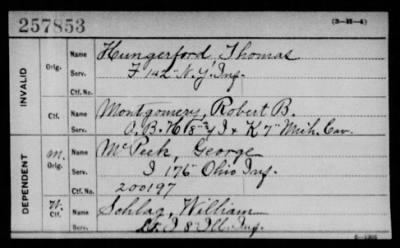 257853
(3—31—4)
INVALID
Orig.
Name Hungerford, Thomas
Serv. F 142" N.Y. Inf.
Ctf. No.
Ctf.
Name Montgomery, Robert B.
Serv. & K 7" Mich. Cav.
DEPENDENT
M. Orig.
Name McPeek, George
Serv. I 175" Ohio Inf.
Ctf. No. 200197
W. Ctf.
Name Schlag, William
Serv. Lt. I 8" Ill. Inf.